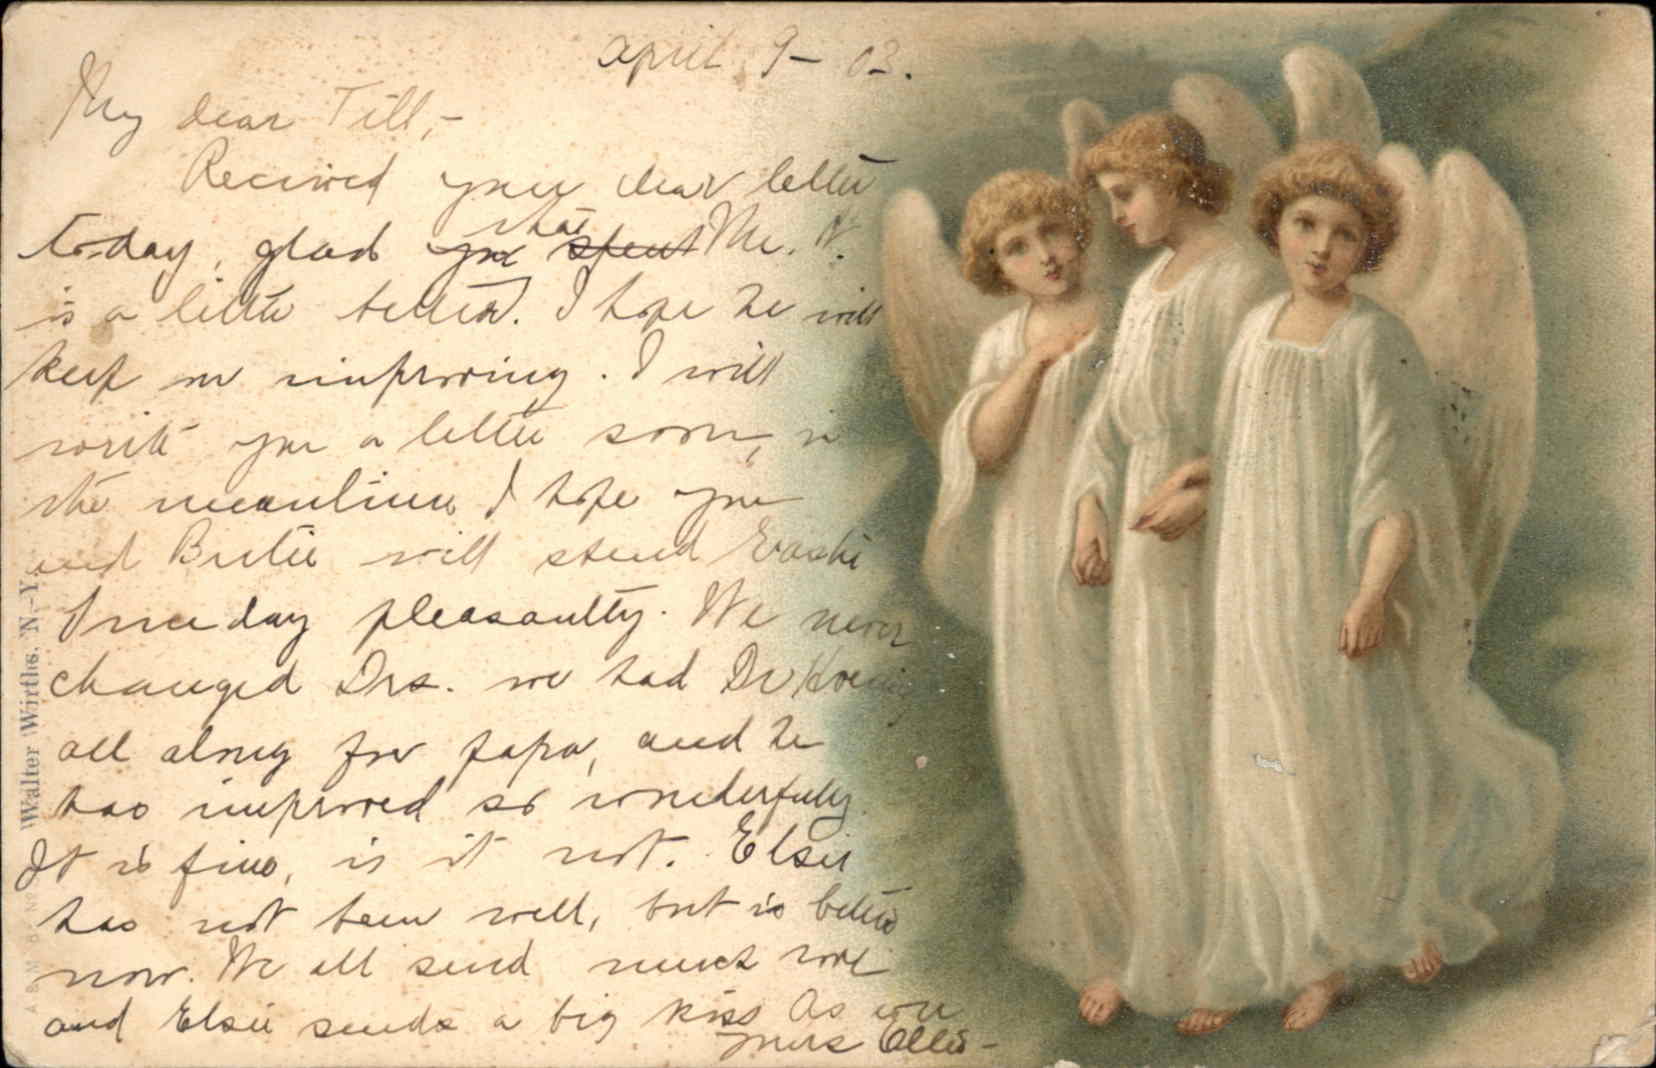 April 9 - 03.
My dear Till, -
Received your dear letter
to-day, glad that Mr. N.
is a little better. I hope he will
keep on improving. I will
write you a letter soon, in
the meantime I hope you
and Butie will spend Easter
day pleasantly. We never
changed Drs. we had Dr Koenig
all along for papa, and he
has improved so wonderfully.
It is fine, is it not. Elsie
has not been well, but is better
now. We all send much love
and Elsie sends a big kiss As ever
yours Ella -
Walter Wirths, N.-Y.